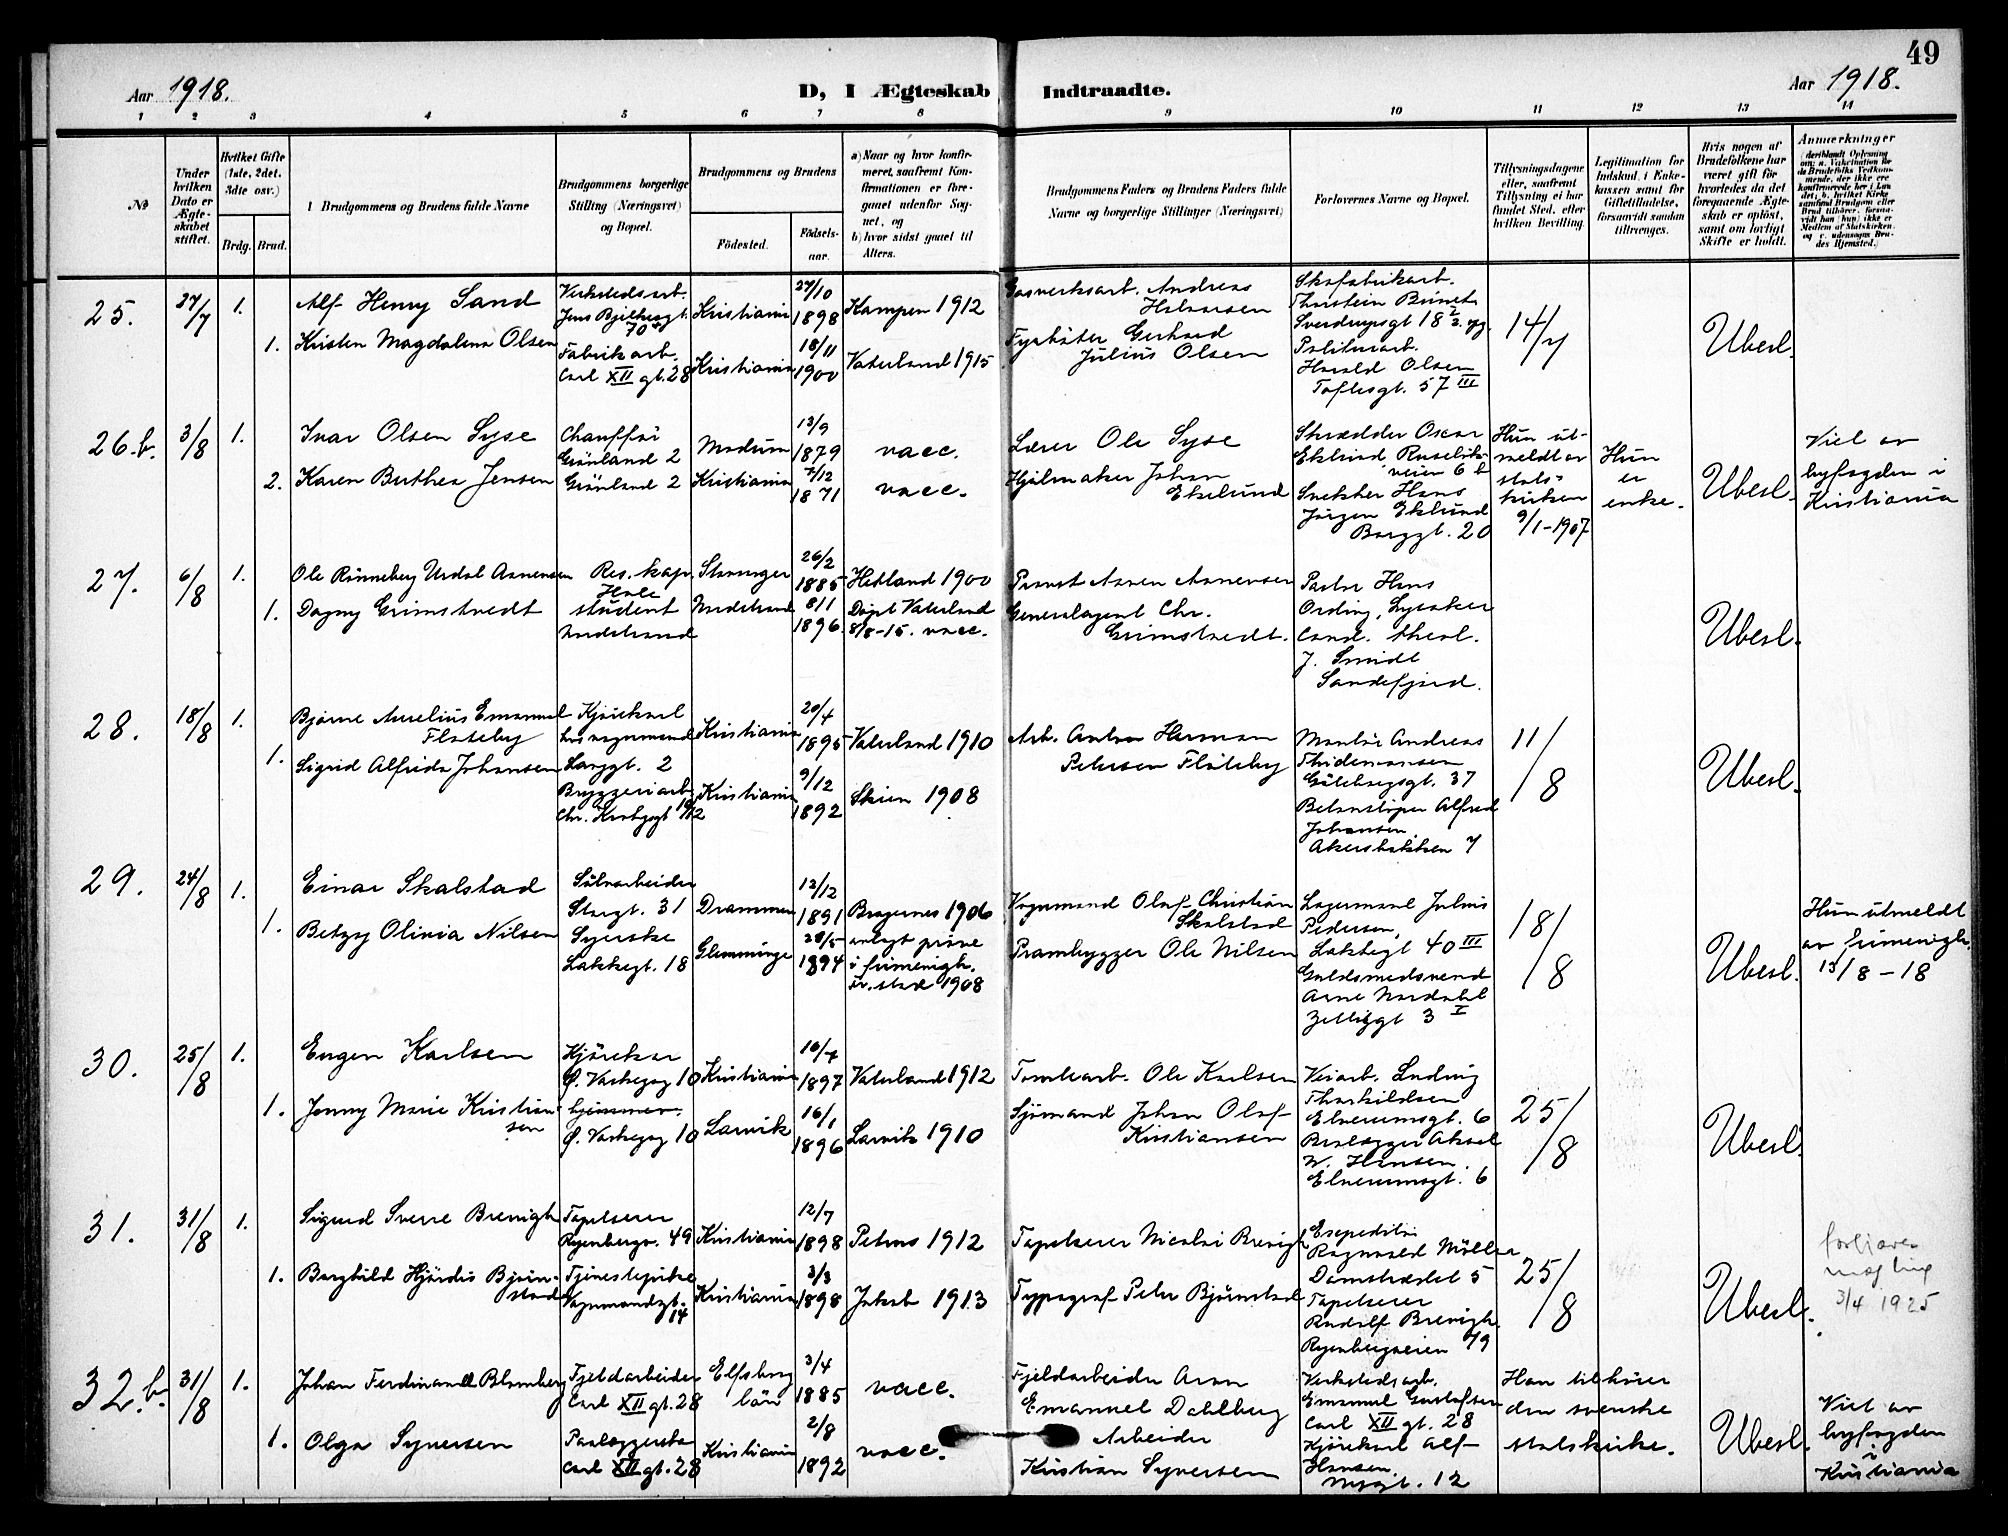 49
Aar 1918.
D, I Ægteskab Indtraadte.
Aar 1918.
1 2 3 4 5 6 7 8 9 10 11 12 13 14
No
Under hvilken Dato er Ægteskabet stiftet.
Hvilket Gifte (1ste, 2det, 3dte osv.)
Brdg. Brud.
1 Brudgommens og Brudens fulde Navne
Brudgommens borgerlige Stilling (Næringsvei) og Bopæl.
Brudgommens og Brudens
Födested.
Födsels-aar.
a) Naar og hvor konfirmeret, saafremt Konfirmationen er foregaaet udenfor Sognet, og
b) hvor sidst gaaet til Alters.
Brudgommens Faders og Brudens Faders fulde Navne og borgerlige Stillinger (Næringsvei)
Forlovernes Navne og Bopæl.
Tillysningsdagene eller, saafremt Tillysning ei har fundet Sted, efter hvilken Bevilling.
Legitimation for Indskud i Enkekassen samt for Giftetilladelse, forsaavidt saadan tiltrænges.
Hvis nogen af Brudefolkene har været gift för hvorledes da det foregaaende Ægteskab er oplöst, samt om lovligt Skifte er holdt.
Anmerkninger
25. 27/7 1.
Alf Henry Sand
Verkstedsarb.
Kristiania 27/10 1898
Kampen 1912
Gasverksarb. Andreas Halvorsen
Skofabrikarb.
Sverdrupsgt 18
14/7
Ubesl.
1. Kirsten Magdalena Olsen
Fabrikarb.
Carl XII gt. 28
Kristiania 18/11 1900
Vaterland 1915
Fyrbøter Gerhard Julius Olsen
Harald Olsen
Toftesgt. 57 III
26.b. 3/8 1.
Ivar Olsen Syse
Chauffør
Grønland 2
Modum 13/9 1879
vacc.
Lærer Ole Syse
Skrædder Oscar Eklund
Hun utmeldt av statskirken 9/1-1907
Hun er enke.
Ubesl.
Viet av byfogden i Kristiania
2. Karen Berthea Jensen
Grønland 2
Kristiania 7/12 1871
vacc.
Hjulmaker Johan Ekelund
Snekker Hans Jørgen Eklund
Borggt. 20
27. 6/8 1.
Ole Rønneberg Urdal Aanensen
Res. kap. Hole
Stavanger 26/2 1885
Hetland 1900
Provst Aanen Aanensen
Pastor Hans Ording, Lysaker
Ubesl.
1. Dagny Grimstvedt
student
Nedstrand
Nedstrand 8/1 1896.
Døpt Vaterland 8/8-15. vacc.
Generalagent Chr. Grimstvedt.
Cand. theol. J. Smidt
Sandefjord.
28. 18/8 1.
Bjarne Aurelius Emanuel Flateby
Kjørekarl hos vognmand
Langgt. 2
Kristiania 20/4 1895
Vaterland 1910
Arb. Anton Herman Petersen Flateby
Montør Andreas Thidemansen
Gøteborggt. 37
11/8
Ubesl.
1. Sigrid Alfrida Johansen
Bryggeriarb.
Kristiania 9/12 1892
Skien 1908
Betonstøper Alfred Johansen,
Akersbakken 7
29. 24/8 1.
Einar Skalstad
Sølvarbeider
Storgt. 31
Drammen 12/12 1891
Bragernes 1906
Vognmand Olaf Christian Skalstad
Lagermand Julius Pedersen,
Lakkegt 40 III
18/8
Ubesl.
Hun utmeldt av frimenigh. 15/8-18
1. Betzy Olivia Nilsen
Syerske
Lakkegt. 18
Glemminge 28/5 1894
avlagt prøve i frimenigh. Fr.stad 1908
Prambygger Ole Nilsen
Guldsmedsvend Arne Nordahl
30. 25/8 1.
Eugen Karlsen
Kjørekar
Ø. Vaskegang 10
Kristiania 16/7 1897
Vaterland 1912
Tomtearb. Ole Karlsen
Veiarb. Ludvig Thorkildsen
Elverumsgt. 6
25/8
Ubesl.
1. Jenny Marie Kristiansen
hjemmev.
Ø. Vaskegang 10
Larvik 16/1 1896
Larvik 1910
Sjømand Johan Olaf Kristiansen
Brolægger Aksel W. Hansen.
Elverumsgt. 6
31. 31/8 1.
Sigurd Sverre Brevigh
Tapetserer
Ryenbergv. 49
Kristiania 12/7 1898
Petrus 1912
Tapetserer Nicolai Brevigh
Expeditør Ragnvald Møller
Damstrædet 5
25/8
Ubesl.
3/4 1925
1. Borghild Hjørdis Bjørnstad
Tjenestepike
Vognmandsgt. 14
Kristiania 3/3 1898
Jakob 1913
Typograf Peter Bjørnstad
Tapetserer Rudolf Brevigh.
Ryenbergveien 49
32.b. 31/8 1.
Johan Ferdinand Blomberg
Fjeldarbeider
Carl XII gt. 28
Elfsborg län 3/4 1885
vacc.
Fjeldarbeider Aron Emanuel Dahlberg
Verkstedsarb. Emanuel Gustafsen
Carl XII gt. 28
Han tilhører den svenske statskirke.
Ubesl.
Viet av byfogden i Kristiania
1. Olga Syversen
Carl XII gt. 28
Kristiania 2/8 1892
vacc.
Arbeider Kristian Syversen
Kjørekarl Alf Hansen,
Nygt. 12